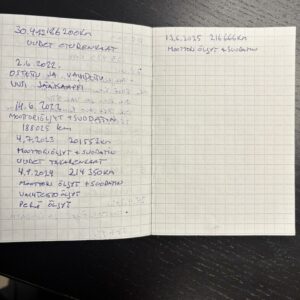 30.4.22 186200KM
UUDET ETURENKAAT
2.6.2022.
OSTETTU JA VAIHDETTU
UUSI
14.6.2022
MOOTTORIÖLJYT + SUODATIN
188025 km
4.7.2023
MOOTTORIÖLJYT + SUODATIN
UUDET TAKARENKAAT
4.9.2024 214350KM
MOOTTORI ÖLJYT + SUODATIN
VAIHTEISTO ÖLJYT
PERÄ ÖLJYT
13.6.2025 216666KM
MOOTTORI ÖLJYT + SUODATIN